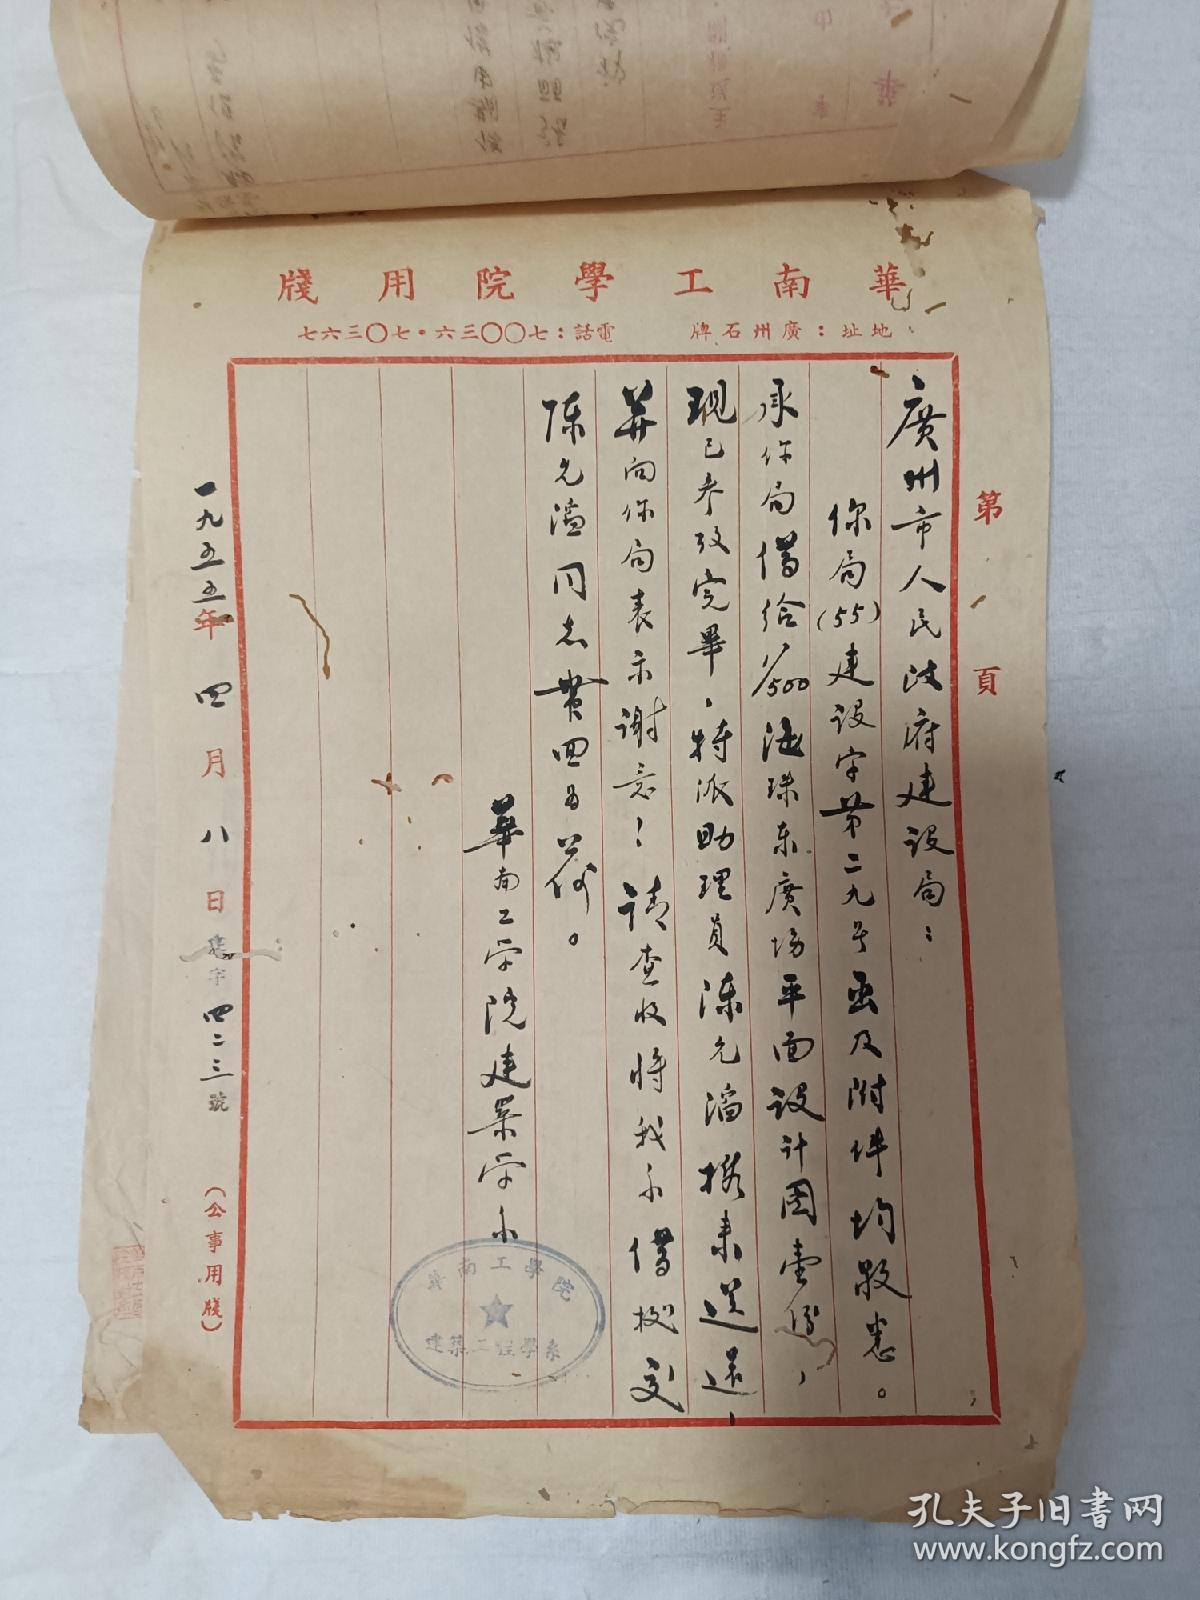 華南工學院用牋
地址：廣州石牌　電話：七〇〇三六·七〇三六七
第　頁
廣州市人民政府建设局：
你局(55)建设字第二九号函及附件均敬悉。
承你局借给1/500海珠东廣场平面设计图壹份，
现已参攷完畢，特派助理員陳允滔携来送还，
并向你局表示谢意！请查收将我系借据交
陈允滔同志带回为荷。
華南工学院建築学系
華南工學院
建築工程學系
一九五五年四月八日建字四二三號
（公事用牋）
孔夫子旧书网
www.kongfz.com